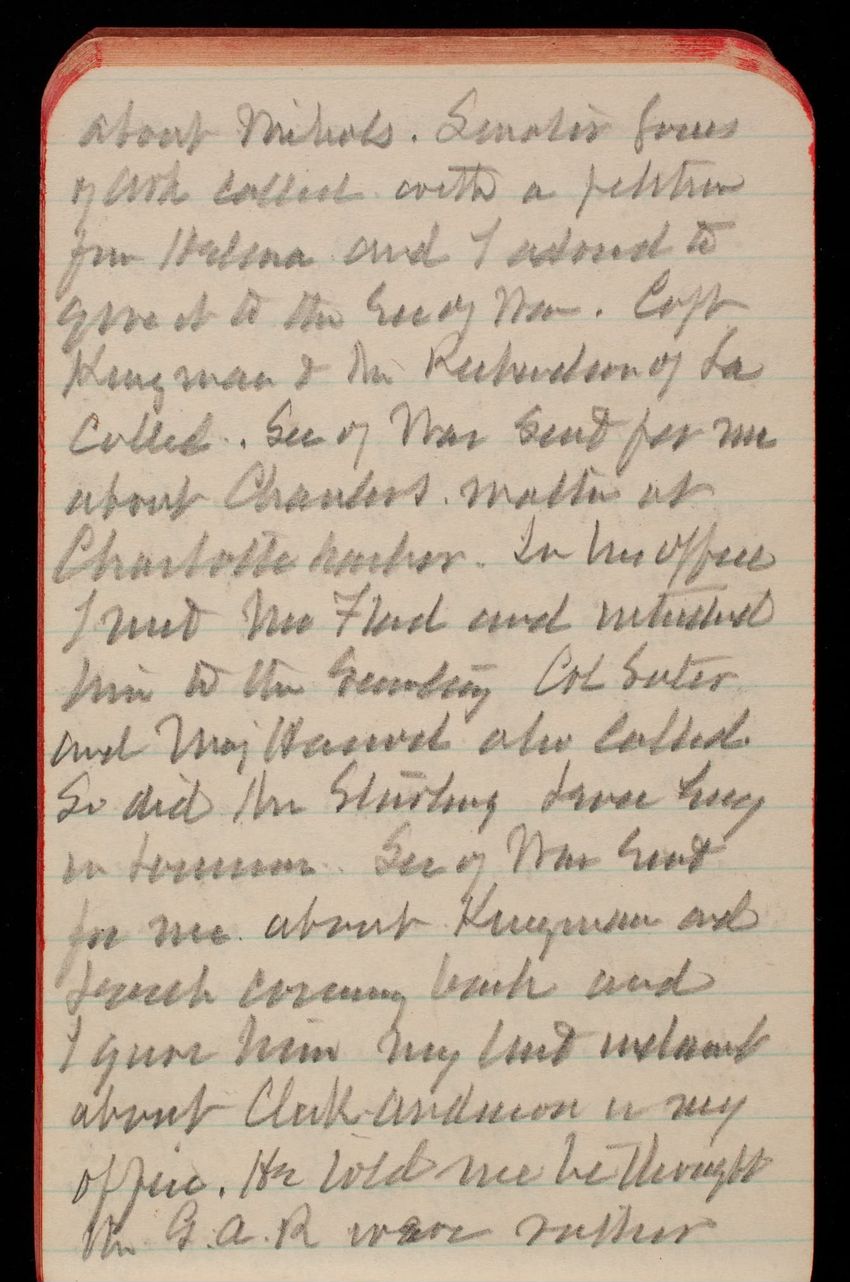 about Nichols. Senator Jones
of Ark called with a petition
from Helena and I advised to
give it to the Sec of War. Capt
Kingman & Mr Richardson of La
Called. Sec of War Sent for me
about matter at
Charlotte harbor. In his office
I met Mr Flad and introduced
him to the Secretary Col Suter
and Maj also Called.
So did Mr
in Sec of War Sent
for me about Kingman and
coming back and
I gave him my
about Clerk Anderson in my
office. He told me he thought
the G.A.R were rather